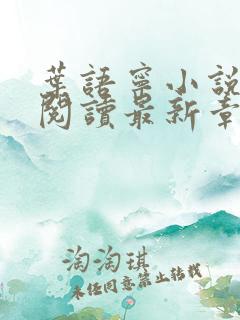 葉語寧小說
閱讀最新章
淘淘琪
未經同意禁止轉載